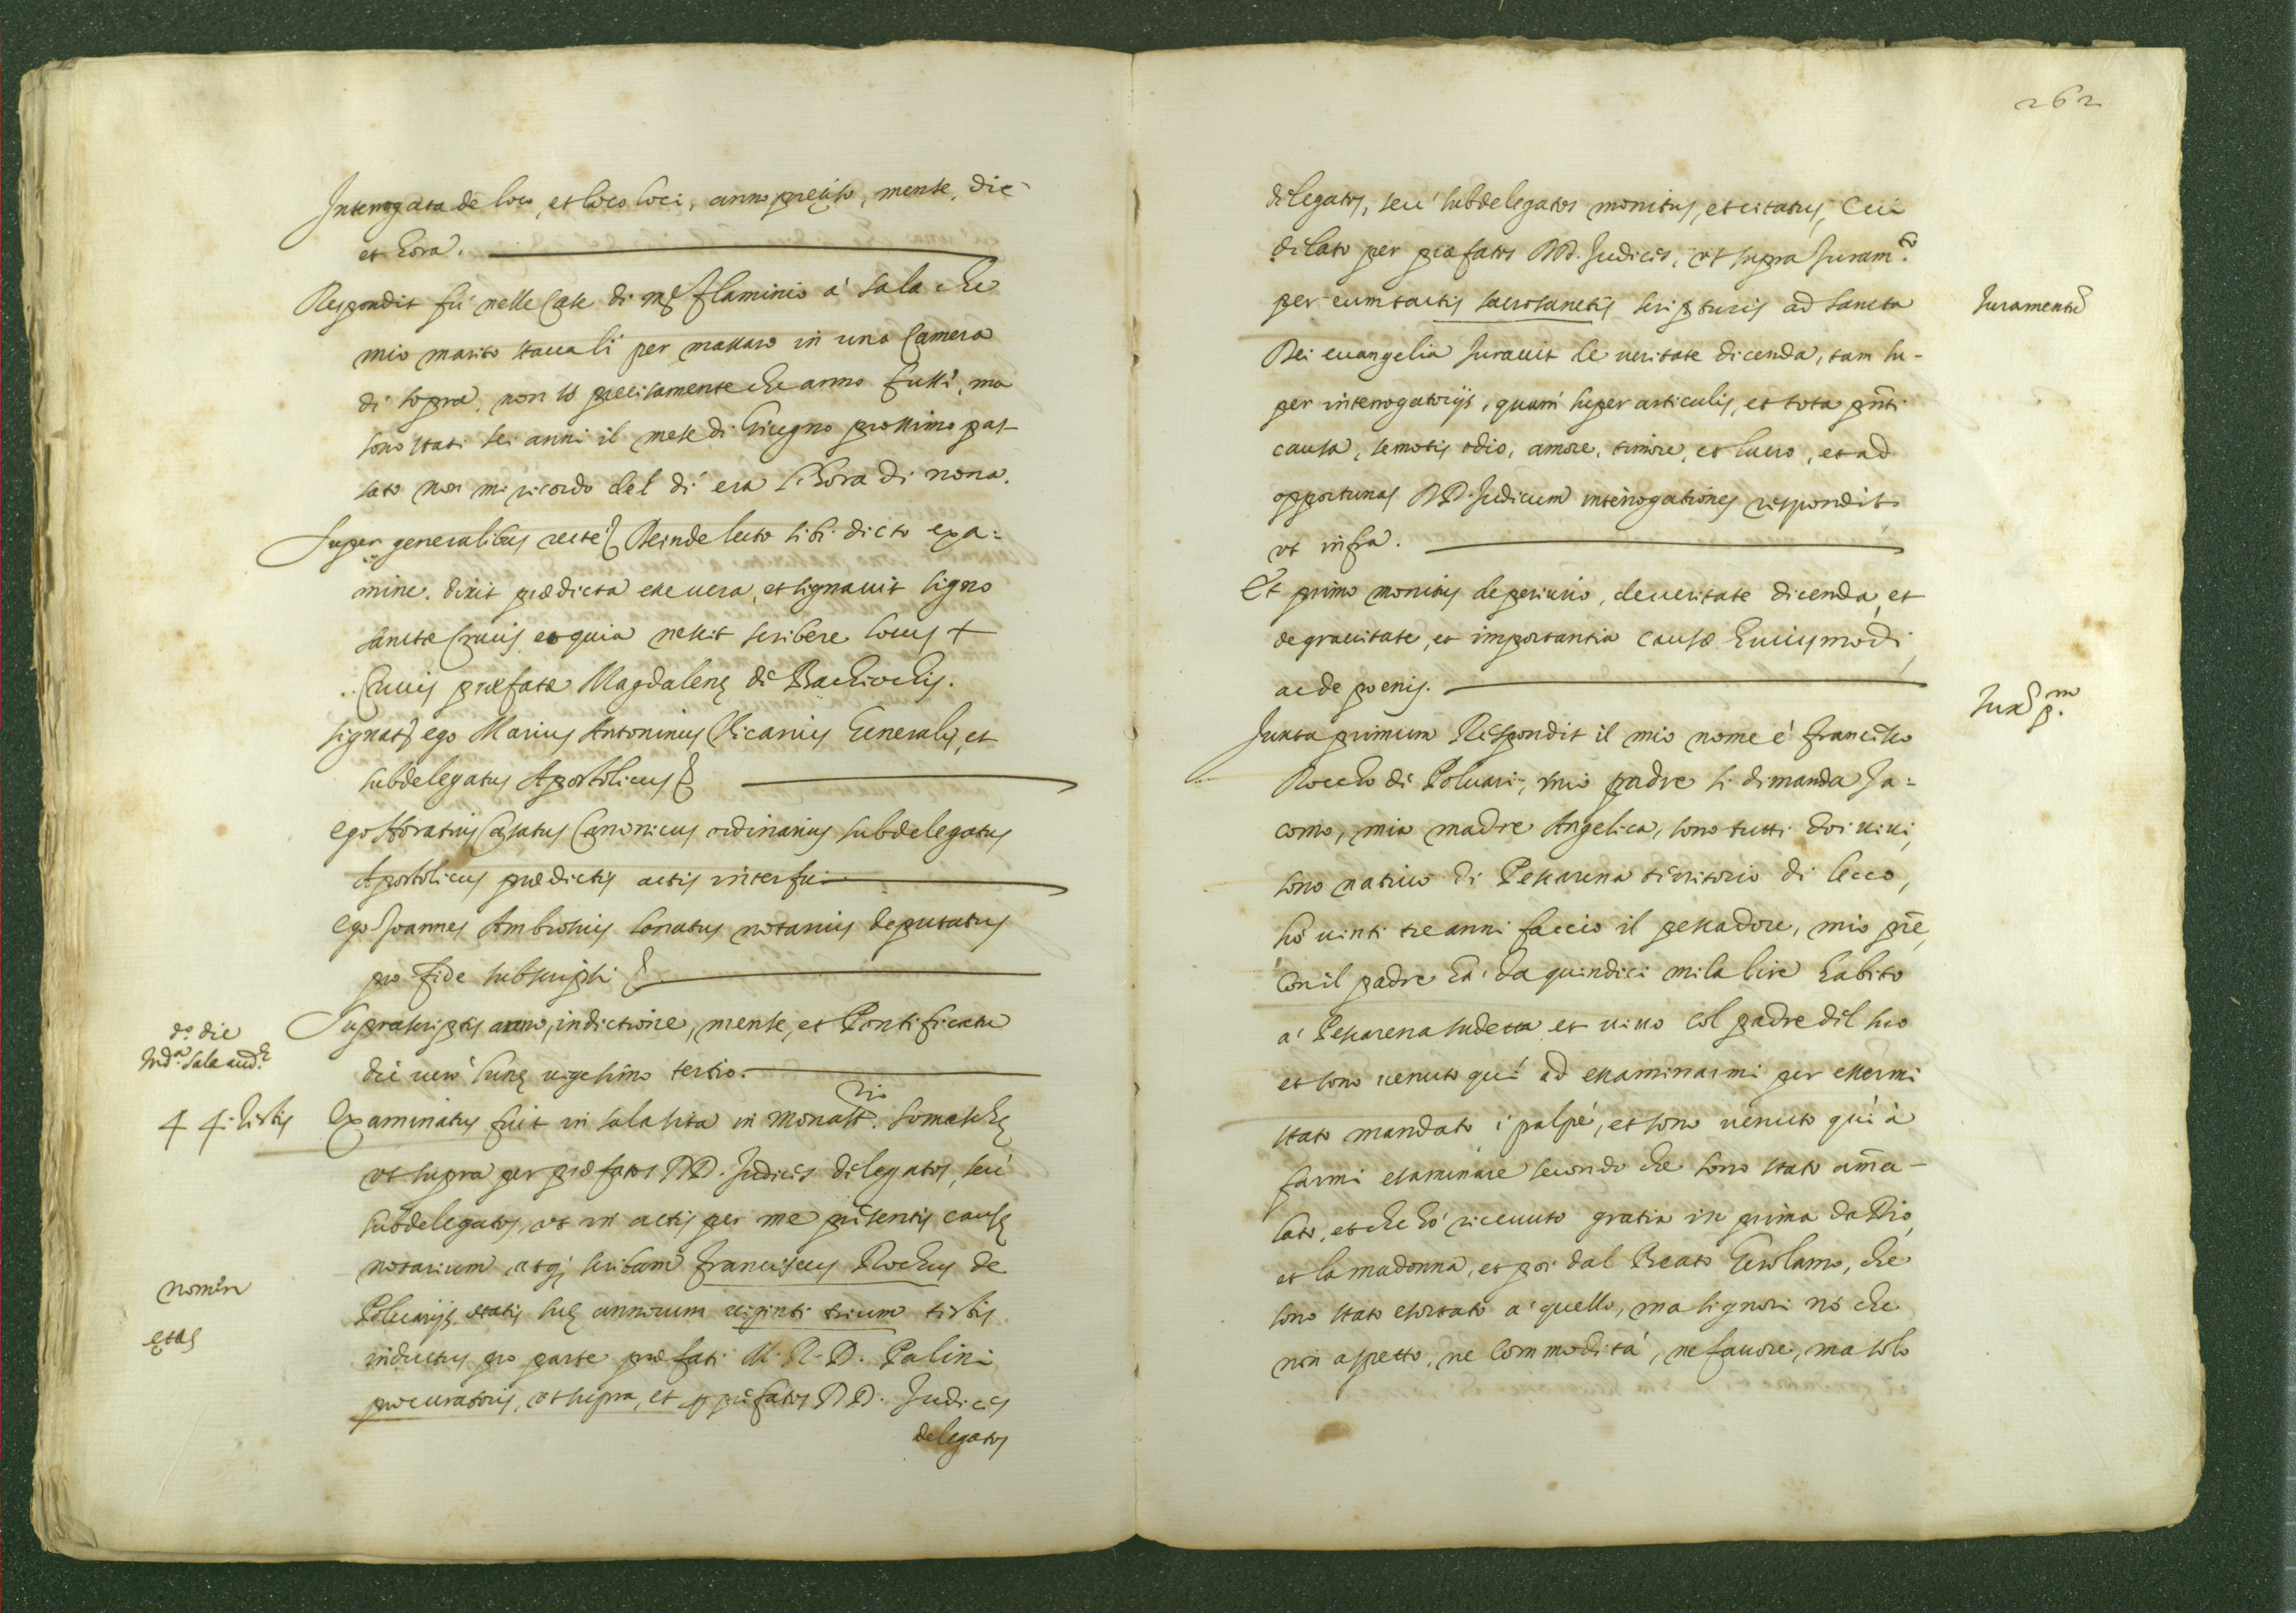 Interrogata de loco, et loco loci, anno preciso, mense, die
et hora.
Respondit fù nelle Case di mr flaminio à Sala che
mio marito staua lì per massaro in una Camera
di sopra, non sò precisamente che anno fussi, ma
sono stati sei anni il mese di Giugno prossimo pas
sato non mi ricordo del dì era l'hora di nona.
Super generalibus recte Deinde lecto sibi dicto exa=
mine. dixit prædicta esse uera, et signauit signo
sanctæ Crucis, eo quia nescit scribere locus +
Crucis præfatæ Magdalenę de Bachiochis.
signat ego Marius Antoninus Vicarius Generalis, et
subdelegatus Apostolicus
ego Horatius Casatus Canonicus ordinarius subdelegatus
Apostolicus prædictis actis interfui
ego Joannes Ambrosius Conatus notarius deputatus
pro fide subscripsi
Suprascriptis anno, indictione, mense, et Pontificatu
do. die
die uero lunę uigesimo tertio.
44. testis
Examinatus fuit in sala sita in Monastrio. Somaschę
ut supra per præfatos DD. Judices delegatos, seu
subdelegatos, ut in actis per me pñtis causę
notarium, atq; scribam franciscus Rochus de
nomen
Poluarijs ętatis suę annorum uiginti trium testis
ętas
inductus pro parte præfati M. R. D. Palini
procuratoris, ut supra, et p præfatos DD. Judices
delegatos
262
delegatos, seu subdelegatos monitus, et citatus, Cui
delato per præfatos DD. Judices, ut supra Juramto.
per eum tactis sacrosanctis scripturis ad sancta
Juramentũ
Dei euangelia Jurauit de ueritate dicenda, tam su-
per interrogatorijs, quam super articulis, et tota pñti
causa, semotis odio, amore, timore, et lucro, et ad
opportunas DD. Judicum interrogationes respondit
ut infra.
Et primo monitus de periurio, de ueritate dicenda, et
de grauitate, et importantia causæ huiusmodi,
ac de poenis.
Juxa pm.
Juxta primum Respondit il mio nome è francesco
Roccho di Poluari, mio padre si dimanda Ja=
como, mia madre Angelica, sono tutti doi uiui,
sono natiuo di Pescarena teritorio di lecco,
hò uinti tre anni faccio il pescadore, mio prẽ,
con il padre hà da quindici mila lire habito
à Pescarena sudetta et uiuo col padre dil suo
et sono uenuto quì ad essaminarmi per essermi
stato mandato i palpè, et sono uenuto quì à
farmi esaminare secondo che sono stato am̃a-
lato, et che hò riceuuto gratia in prima da Dio,
et la madonna, et poi dal Beato Gerolamo, che
sono stato essortato à quello, ma signori nò che
non aspetto, ne commodità, ne fauore, ma solo